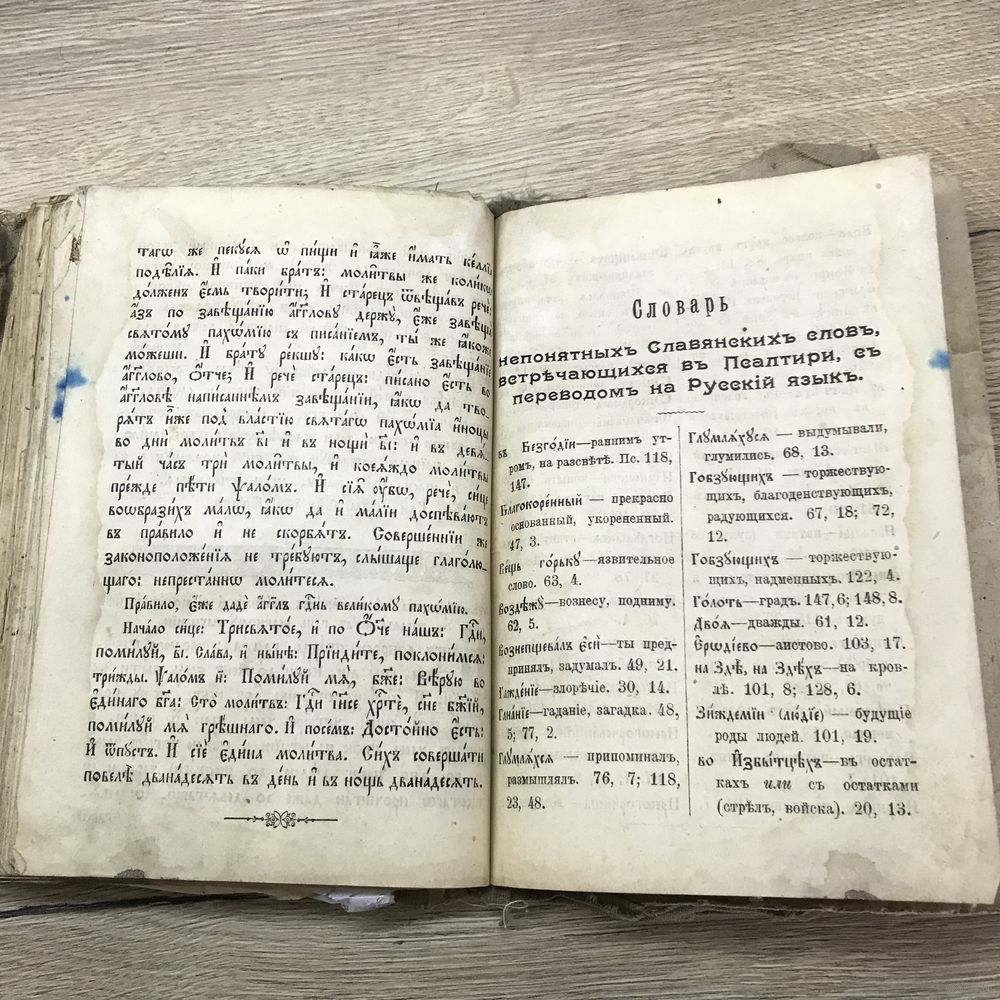 тагѡ же пекꙋсѧ ѿ пищи и҆ ꙗ҆́же и҆́мать ке́ллїѧ
подѣ́лїѧ. И҆ па́ки бра́тъ: моли́твы же коли́кѡ
до́лженъ є҆́смь твори́ти; И҆ ста́рецъ ѿвѣща́въ речѐ:
а҆́зъ по завѣща́нїю а҆́гг҃лову держꙋ̀, є҆́же завѣща̀
свѧто́му пахѡ́мїю съ писа́нїемъ, ты́ же ꙗ҆́коже
мо́жеши. И҆ бра́тꙋ ре́кшꙋ: ка́кѡ є҆́сть завѣща́нїе
а҆́гг҃лово, ѻ҆́тче; И҆ речѐ ста́рецъ: пи́сано є҆́сть во
а҆́гг҃ловѣ написа́ннѣмъ завѣща́нїи, ꙗ҆́кѡ да тво-
рѧ́тъ и҆̀же под̾ вла́стїю свѧта́гѡ пахѡ́мїа и҆́ноцы
во днѝ моли́твъ в҃і и҆ въ но́щи в҃і: и҆ въ девѧ́-
тый ча́съ трѝ моли́твы, и҆ кое́ѧждо моли́твы
пре́жде пѣ́ти ѱало́мъ. И҆ сїѧ̑ ᲂу҆́бѡ, речѐ, си́це
воѡбрази́хъ ма́лѡ, ꙗ҆́кѡ да и҆ ма́лїи доспѣва́ютъ
въ пра́вило и҆ не скорбѧ́тъ. Соверше́ннїи же
законоположе́нїѧ не тре́бꙋютъ, слы́шаще глаго́лю-
щаго: непреста́ннѡ моли́тесѧ.
Пра́вило, є҆́же дадѐ а҆́гг҃лъ гд҇нь вели́комꙋ пахѡ́мїю.
Нача́ло си́це: Трисвѧто́е, и҆ по Ѻ҆́ч҃е на́шъ: Гдⷭ҇и,
поми́лꙋй, в҃і. Сла́ва, и҆ ны́нѣ: Прїиди́те, поклони́мсѧ:
три́жды. Ѱало́мъ н҃: Поми́лꙋй мѧ̀, бж҃е: Вѣ́рꙋю во
є҆ди́наго бг҃а: Сто̀ моли́твъ: Гдⷭ҇и і҆и҃се хрⷭ҇тѐ, сн҃е бж҃їй,
поми́лꙋй мѧ̀ грѣ́шнаго. И҆ посе́мъ: Досто́йно є҆́сть:
И҆ ѿпꙋ́стъ. И҆ сїѐ є҆ди́на моли́тва. Си́хъ соверша́ти
повелѣ̀ двана́десѧть въ де́нь и҆ въ но́щь двана́десѧть.
Словарь
непонятныхъ Славянскихъ словъ,
встрѣчающихся въ Псалтири, съ
переводомъ на Русскій языкъ.
въ Безго́дїи—раннимъ ут-
ромъ, на разсвѣтѣ. Пс. 118,
147.
Благокоре́нный — прекрасно
основанный, укорененный.
47, 3.
Ве́щь го́рькꙋ—язвительное
слово. 63, 4.
Возде́жꙋ—вознесу, подниму.
62, 5.
Вознепщева́лъ є҆сѝ—ты пред-
принялъ, задумалъ. 49, 21.
Гажде́нїе—злорѣчіе. 30, 14.
Гана́нїе—гаданіе, загадка. 48,
5; 77, 2.
Глꙋмлѧ́хсѧ — припоминалъ,
размышлялъ. 76, 7; 118,
23, 48.
Глꙋмлѧ́хꙋсѧ — выдумывали,
глумились. 68, 13.
Гобзꙋ́ющихъ — торжествую-
щихъ, благоденствующихъ,
радующихся. 67, 18; 72,
12.
Гобзꙋ́ющихъ — торжествую-
щихъ, надменныхъ. 122, 4.
Го́лоть—градъ. 147, 6; 148, 8.
Двоѧ̀—дважды. 61, 12.
Є҆рѡді́ево—аистово. 103, 17.
на Здѣ̀, на Здѣ́хъ—на кров-
лѣ. 101, 8; 128, 6.
Зи́ждемїи (лю́дїе) — будущіе
роды людей. 101, 19.
во И҆збы́тцѣхъ—въ остат-
кахъ или съ остатками
(стрѣлъ, войска). 20, 13.